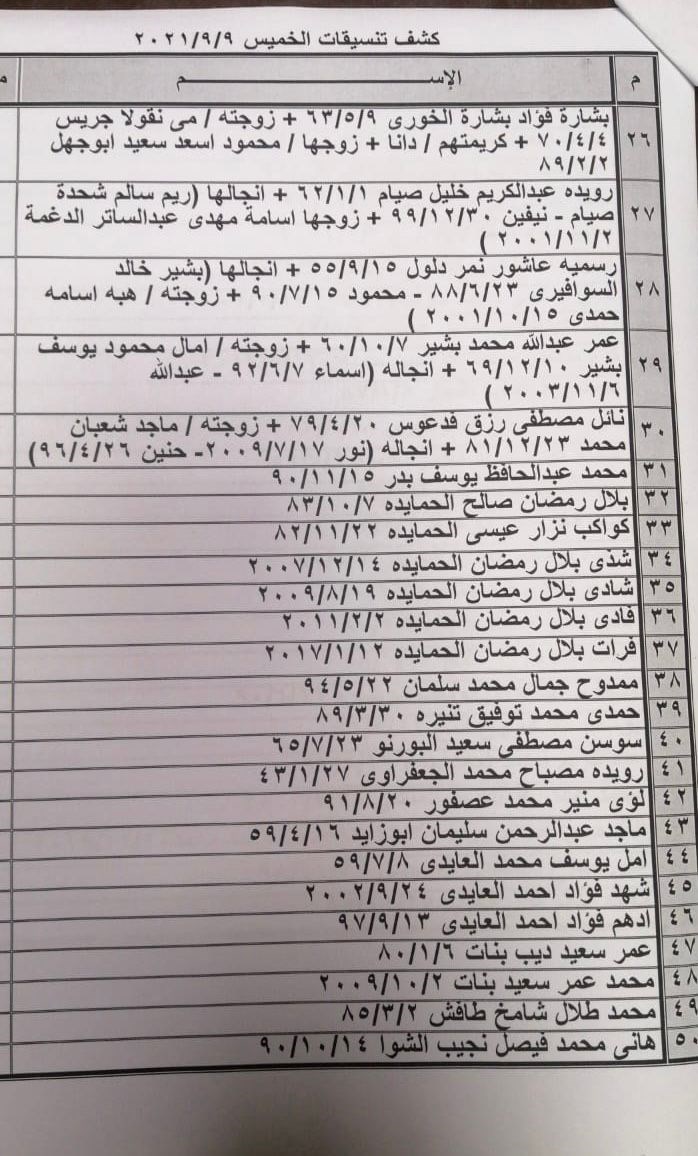 كشف تنسيقات الخميس ٢٠٢١/٩/٩
م الإســـم م
٢٦ بشارة فؤاد بشارة الخورى ٦٣/٥/٩ + زوجته / مى نقولا جريس
٧٠/٤/٤ + كريمتهم / دانا + زوجها / محمود اسعد سعيد ابوجهل
٨٩/٢/٢
٢٧ رويده عبدالكريم خليل صيام ٦٢/١/١ + انجالها (ريم سالم شحدة
صيام - نيفين ٩٩/١٢/٣٠ + زوجها اسامة مهدى عبدالساتر الدغمة
٢٠٠١/١١/٢ )
٢٨ رسميه عاشور نمر دلول ٥٥/٩/١٥ + انجالها (بشير خالد
السوافيرى ٨٨/٦/٢٣ - محمود ٩٠/٧/١٥ + زوجته / هبه اسامه
حمدى ٢٠٠١/١٠/١٥ )
٢٩ عمر عبدالله محمد بشير ٦٠/١٠/٧ + زوجته / امال محمود يوسف
بشير ٦٩/١٢/١٠ + انجاله (اسماء ٩٢/٦/٧ - عبدالله
٢٠٠٣/١١/٦ )
٣٠ نائل مصطفى رزق قدعوس ٧٩/٤/٢٠ + زوجته / ماجد شعبان
محمد ٨١/١٢/٢٣ + انجاله (نور ٢٠٠٩/٧/١٧- حنين ٩٦/٤/٢٦)
٣١ محمد عبدالحافظ يوسف بدر ٩٠/١١/١٥
٣٢ بلال رمضان صالح الحمايده ٨٣/١٠/٧
٣٣ كواكب نزار عيسى الحمايده ٨٢/١١/٢٢
٣٤ شذى بلال رمضان الحمايده ٢٠٠٧/١٢/١٤
٣٥ شادى بلال رمضان الحمايده ٢٠٠٩/٨/١٩
٣٦ فادى بلال رمضان الحمايده ٢٠١١/٢/٢
٣٧ فرات بلال رمضان الحمايده ٢٠١٧/١/١٢
٣٨ ممدوح جمال محمد سلمان ٩٤/٥/٢٢
٣٩ حمدى محمد توفيق تنيره ٨٩/٣/٣٠
٤٠ سوسن مصطفى سعيد البورنو ٦٥/٧/٢٣
٤١ رويده مصباح محمد الجعفراوى ٤٣/١/٢٧
٤٢ لؤى منير محمد عصفور ٩١/٨/٢٠
٤٣ ماجد عبدالرحمن سليمان ابوزايد ٥٩/٤/١٦
٤٤ امل يوسف محمد العايدى ٥٩/٧/٨
٤٥ شهد فؤاد احمد العايدى ٢٠٠٢/٩/٢٤
٤٦ ادهم فؤاد احمد العايدى ٩٧/٩/١٣
٤٧ عمر سعيد ديب بنات ٨٠/١/٦
٤٨ محمد عمر سعيد بنات ٢٠٠٩/١٠/٢
٤٩ محمد طلال شامخ طافش ٨٥/٣/٢
٥٠ هانى محمد فيصل نجيب الشوا ٩٠/١٠/١٤